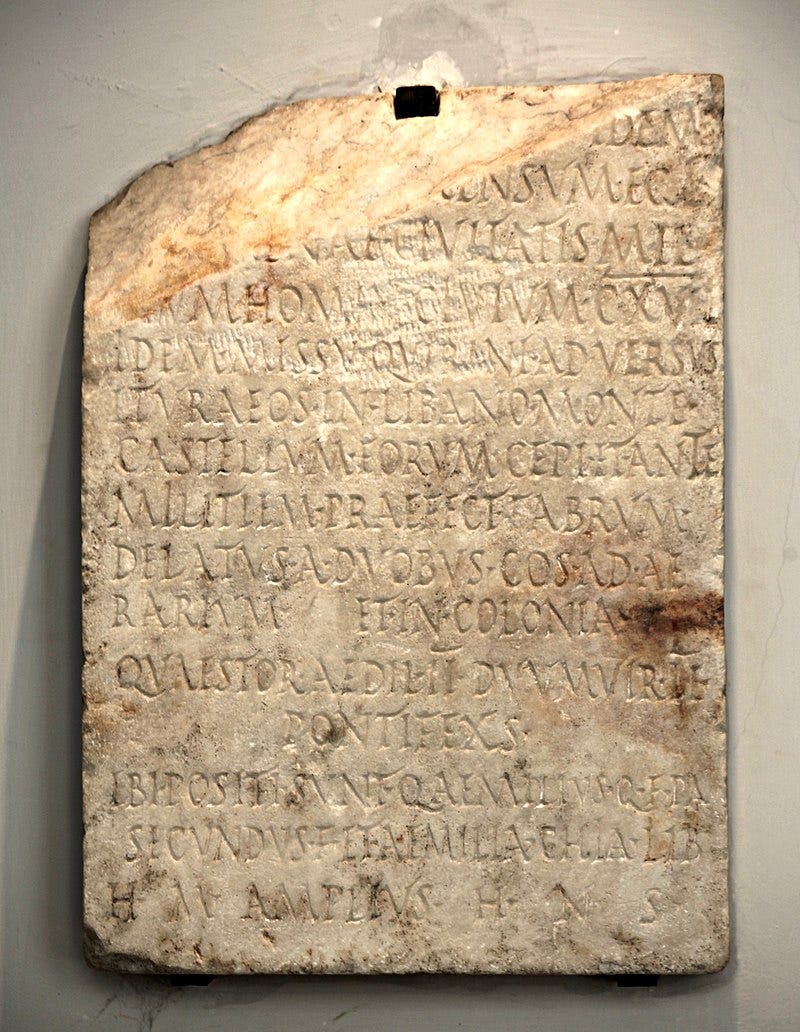 IDEM
CENSVM·EGI
NAE·CIVITATIS·MIL
IVM·HOMIN·CIVIVM·CXVII
IDEM·MISSV·QVIRINI·ADVERSVS
ITVRAEOS·IN·LIBANO·MONTE·
CASTELLVM·EORVM·CEPI·ET·ANTE
MILITIEM·PRAEFECT·FABRVM·
DELATVS·A·DVOBVS·COS·AD·AE
RARIVM· ET·IN·COLONIA·
QVAESTOR·AEDIL·II·DVVMVIR·II·
PONTIFEXS·
IBI·POSITI·SVNT·Q·AEMILIVS·Q·F·PAL
SECVNDVS·F·ET·AEMILIA·CHIA·LIB·
H· M· AMPLIVS· H· N· S